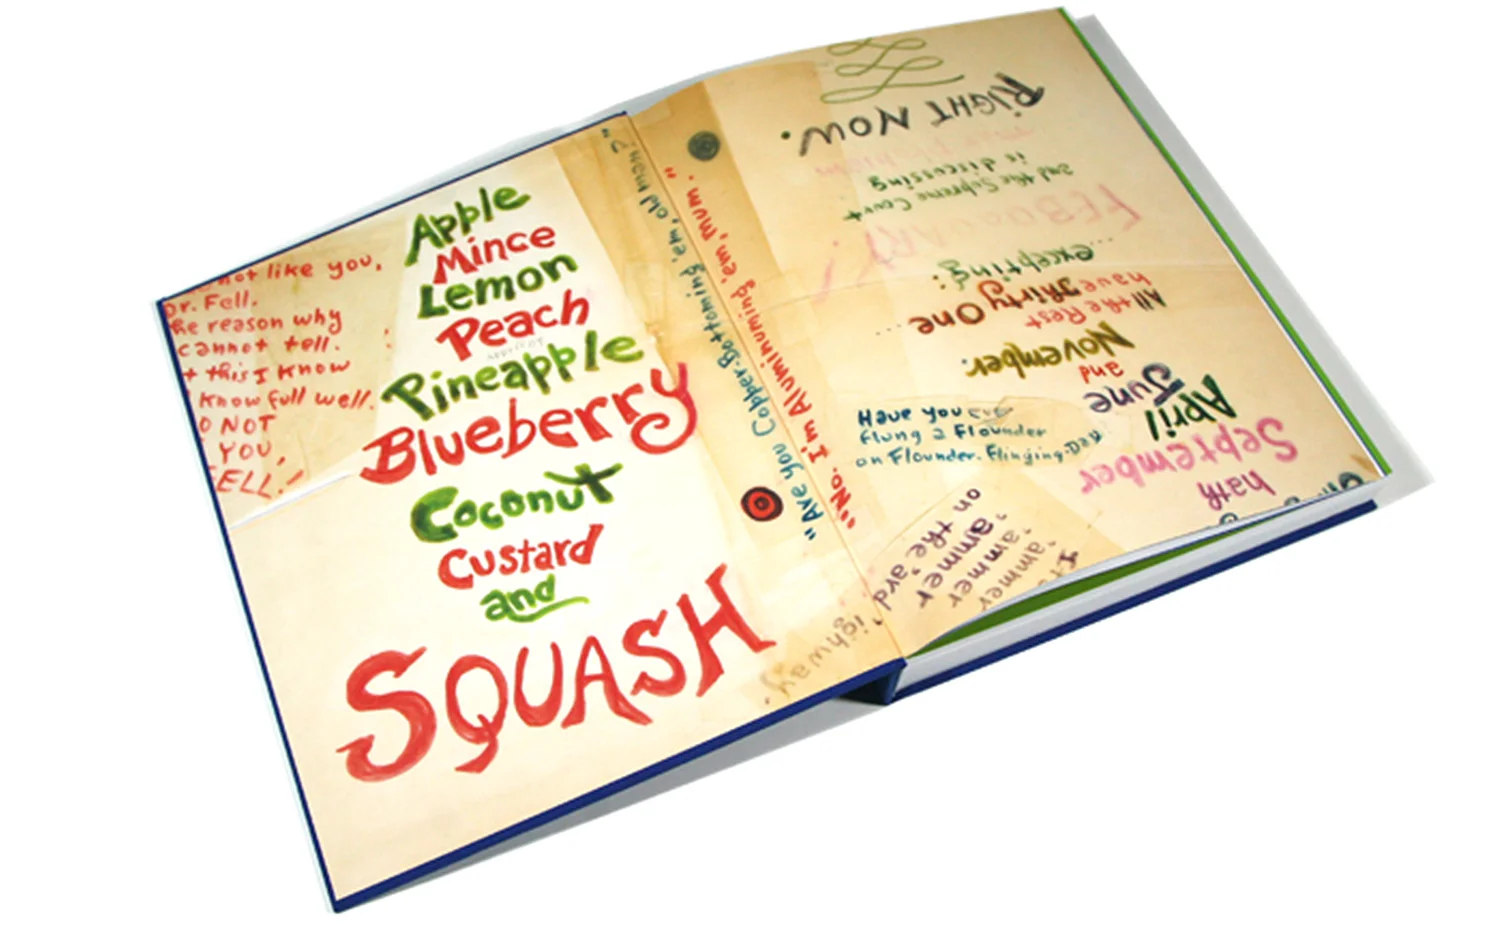 not like you,
Dr. Fell.
he reason why
cannot tell.
this I know
know full well.
O NOT
YOU,
ELL!
Apple
Mince
Lemon
Peach
Apricot
Pineapple
Blueberry
Coconut
Custard
and
SQUASH
"Are you Copper-Bottoming 'em, old man?"
"No. I'm Aluminuming 'em, Mum."
Have you ever
flung a Flounder
on Flounder-Flinging-Day
hath
September
April
June
and
November.
All the Rest
have Thirty One
...excepting:
FEBUOARY!
and the Supreme Court
is discussing
RIGHT NOW.
'ammer
'ammer
'ammer
on the 'ard
'ighway.